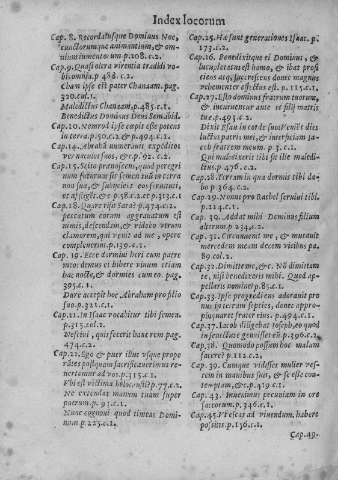 Index locorum
Cap. 8. Recordatusque Dominus Noe,
cunctorumque animantium, & om-
nium iumentorum.p.108.c.2.
Cap.9. Quasi olera virentia tradidi vo-
bis omnia.p.488.c.2.
Cham ipse est pater Chanaam. pag.
320.col.1.
Maledictus Chanaam, p.485.c.1.
Benedictus Dominus Deus Sem. ibid.
Cap.10. Nemrod ipse cœpit esse potens
in terra.p.150.c.2. & p.494.c.2.
Cap.14. Abrahā numerauit expeditos
vernaculos suos, & c.p.92.c.2.
Cap.15. Scito prænoscens, quod peregri
num futurum sit semen tuū in terra
non sua, & subijcient eos seruituti,
et affliget, & c.p.358.c.2.et p.313.c.1
Cap.18. Quare risit Sara? p.474.c.2.
peccatum eorum aggrauatum est
nimis, descendam, & videbo vtrum
clamorem, qui venit ad me, opere
complenerint.p.139.c.2.
Cap.19. Ecce dormiui heri cum patre
meo: demus ei bibere vinum etiam
hac nocte, & dormies cum eo. pag.
395.c.1.
Dure accepit hoc Abraham pro filio
suo.p.311.c.1.
Cap.21. in Isaac vocabitur tibi semen.
p.315.col.2.
Nesciui, quis fecerit hanc rem. pag.
474.c.2.
Cap.22. Ego & puer illuc vsque prope
rātes postquam sacrificauerimus re-
uertemur ad vos.p.315.c.1.
Vbi est victima holocausti? p.77.c.2.
Ne extendas manum tuam super
puerum.p.93.c.1.
Nunc cognoui quod timeas Domi-
num p.225.c.1.
Cap.25. Hæ sunt generationes Isaac. p.
173.c.2.
Cap.26. Benedixitque ei Dominus, &
locupletatus est homo, & ibat profi
ciens atq; succrescens donec magnus
vehementer effectus est. p.115.c.1.
Cap.27. Esto dominus fratrum tuorum,
& incuruentur ante te filij matris
tuæ.p.493.c.1.
Dixit Esau in corde suo: Venient dies
luctus patris mei, & interficiam Ia-
cob fratrem meum. p.3.c.1.
Qui maledixerit tibi sit ille maledi-
ctus.p.476.c.2.
Cap.28. Terram in qua dormis tibi da-
bo p.364.c.2.
Cap.29. Nonne pro Rachel seruiui tibi.
p.124.c.1.
Cap. 30. Addat mihi Dominus filium
alterum p.234.c.2.
Cap.31. Circumuenit me, & mutauit
mercedem meam decem vicibus pa.
89.col.2.
Cap.32. Dimitte me, &c. Nō dimittam
te, nisi benedixeris mihi. Quod ap-
pellaris nomine? p.85.c.1.
Cap.33. Ipse progrediens adorauit pro
num in terram septies, donec appro-
pinquaret frater eius. p.494.c.1.
Cap.37. Iacob diligebat Ioseph, eo quod
in senectute genuisset eū p.396.c.2
Cap.38. Quomodo possum hoc malum
facere? p.112.c.2.
Cap.39. Cumque vidisset mulier ves-
tem in manibus suis, & se esse con-
temptam, & c.p.419.c.1.
Cap.43. Inuenimus pecuniam in ore
saccorum.p.346.c.1.
Cap.45. Vt escas ad viuendum, habere
possitis.p.136.c.1.
Cap.49.